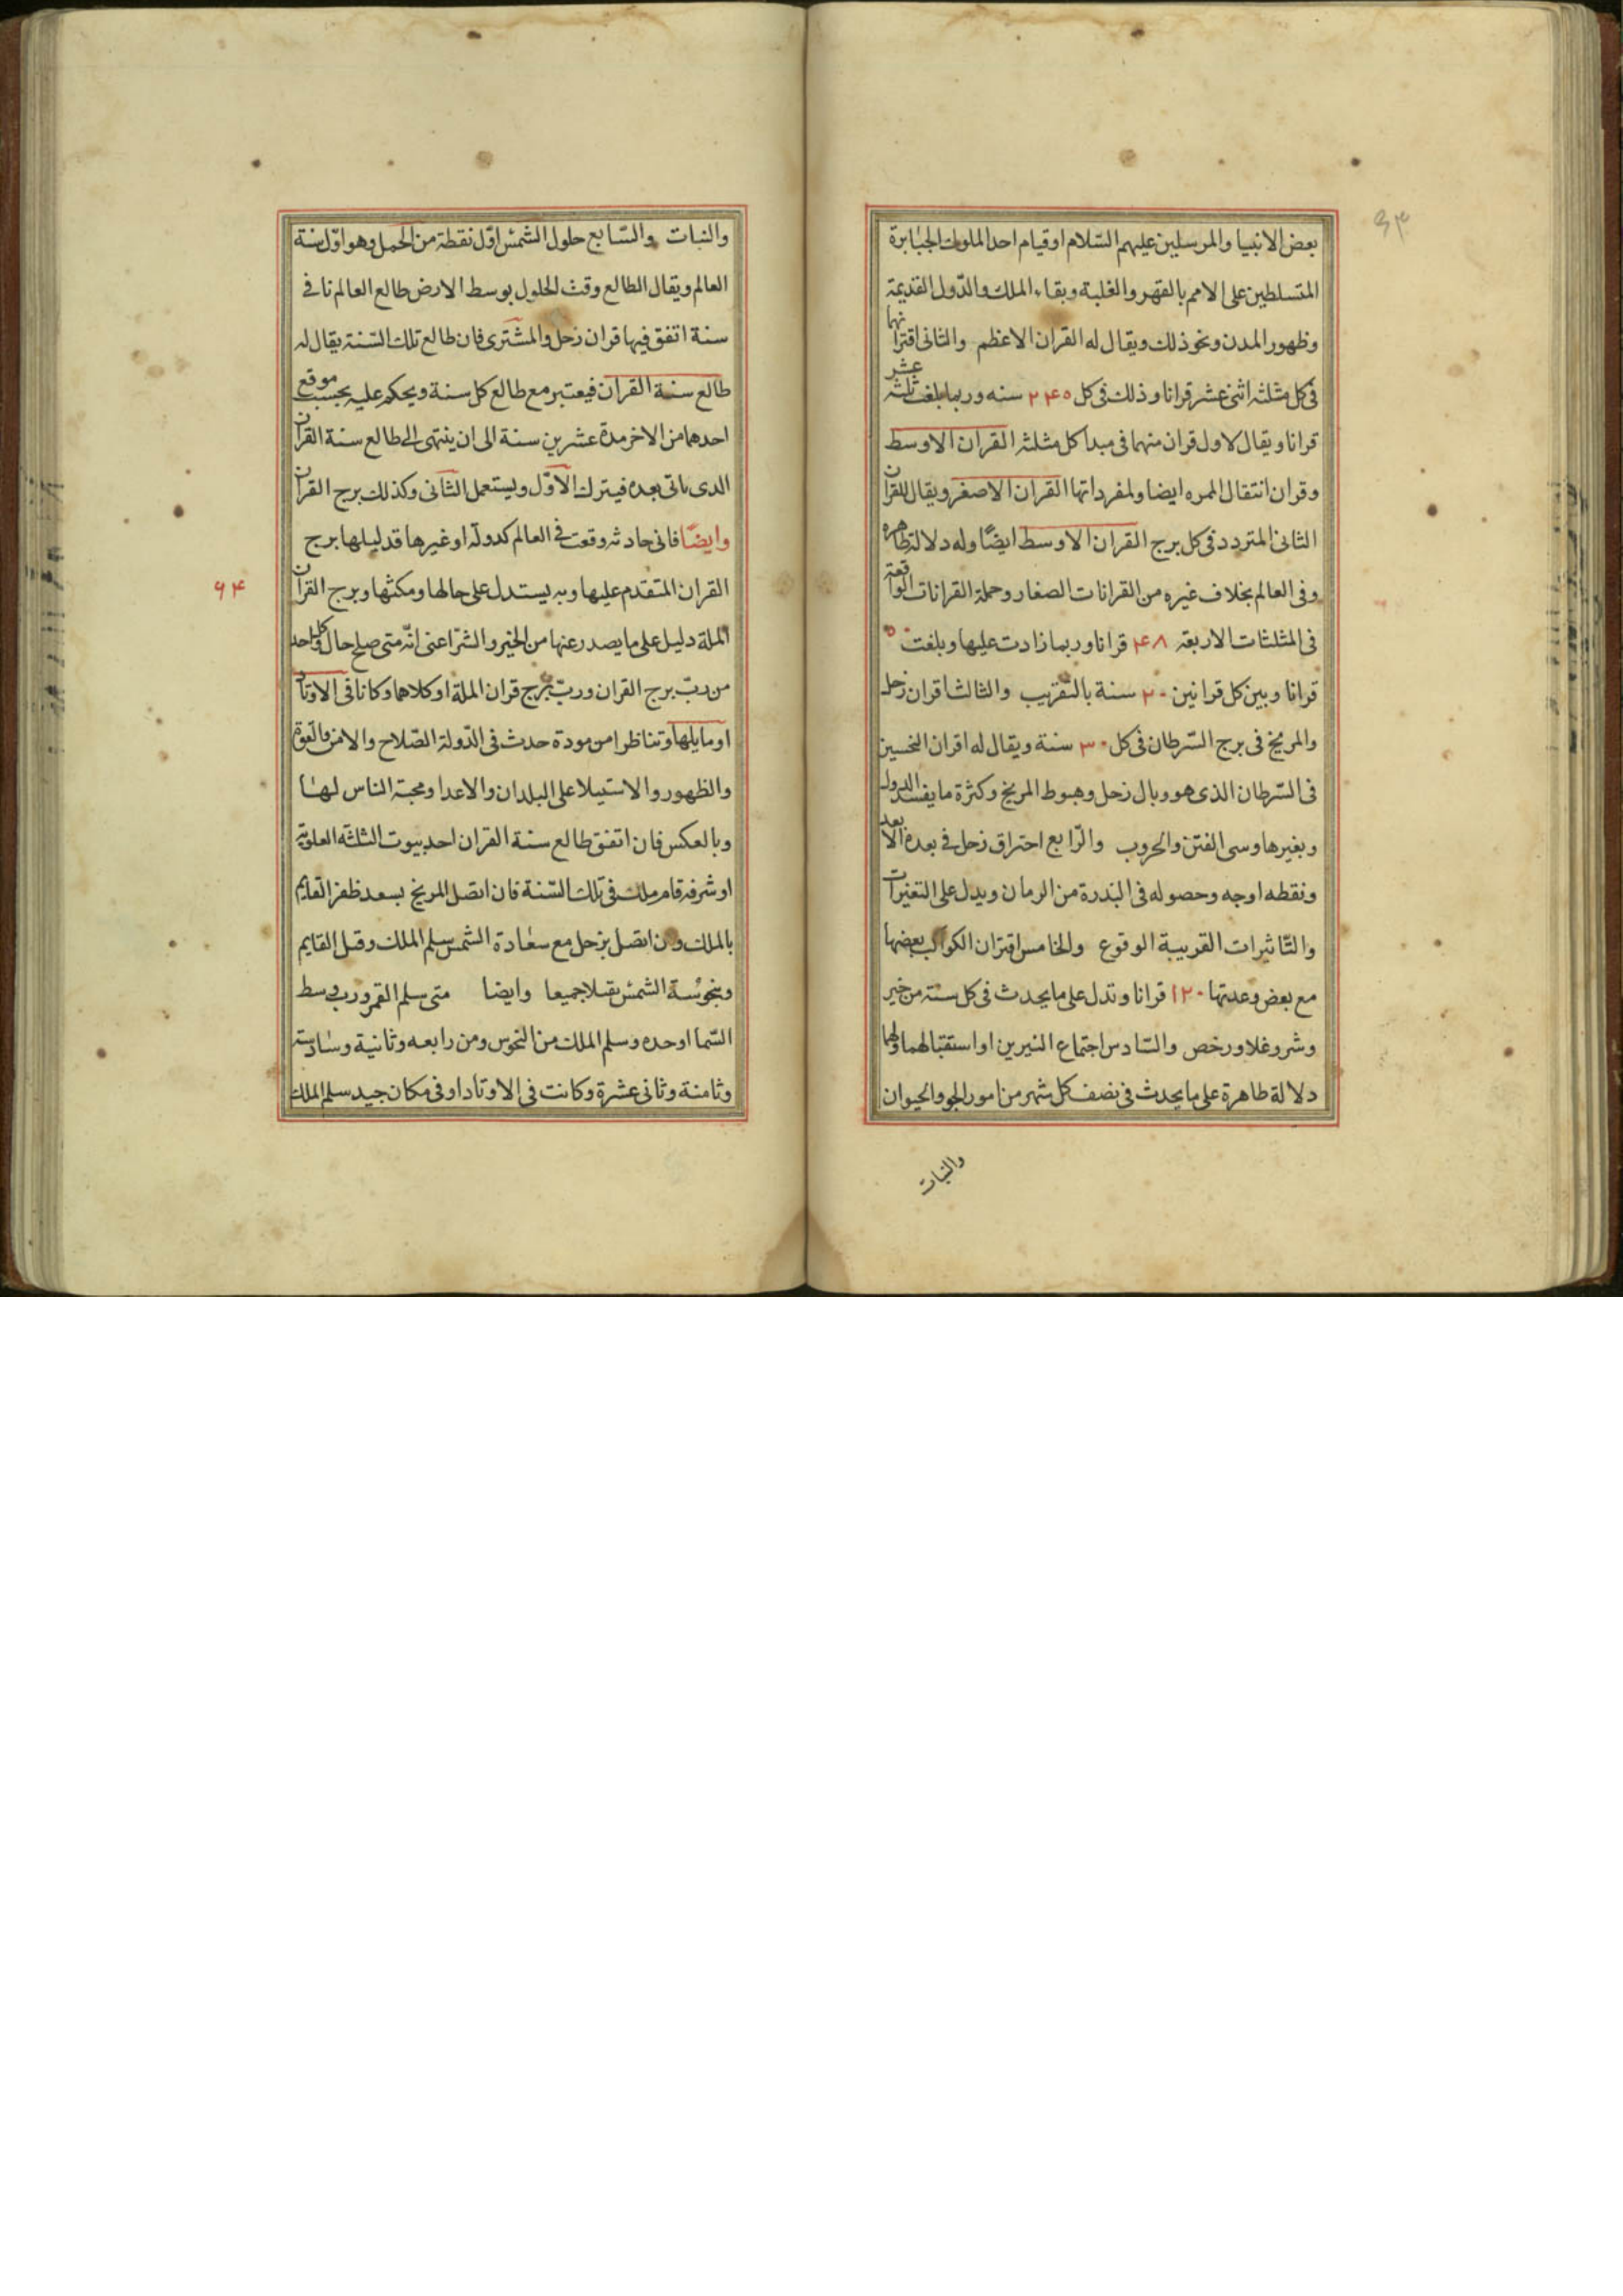 ٩٣
بعض الانبيا والمرسلين عليهم السّلام او قيام احد الملوك الجبابرة
المتسلطين على الامم بالقهر والغلبة وبقاء الملك والدّول القديمة
وظهور المدن ونحو ذلك ويقال له القران الاعظم والثانى اقترانهما
فى كل مثلثه اثنى عشر قرانا وذلك فى كل ٢۴٥ سنه وربما بلغت ثلثه عشر
قرانا ويقال لاول قران منهما فى مبدا كل مثلثه القران الاوسط
وقران انتقال الممره ايضا ولمفرداتها القران الاصغر ويقال للقران
الثانى المتردد فى كل برج القران الاوسط ايضًا وله دلالة ظاهره
وفى العالم بخلاف غيره من القرانات الصغار وجملة القرانات الواقعة
فى المثلثات الاربعة ۴٨ قرانا وربما زادت عليها وبلغت ٥٠
قرانا وبين كل قرانين ٢٠ سنة بالتقريب والثالث اقران زحل
والمريخ فى برج السّرطان فى كل ٣٠ سنة ويقال له اقران النحسين
فى السّرطان الذى هو وبال زحل وهبوط المريخ وكثرة ما يفسد الدول
وبغيرها وسى الفتن والحروب والرّابع احتراق زحل فى بعده الابعد
ونقطه اوجه وحصوله فى الندرة من الزمان ويدل على التغيرات
والتّاثيرات القريبة الوقوع والخامس اقتران الكواكب بعضها
مع بعض وعدتها ١٢٠ قرانا وتدل على ما يحدث فى كل سنة من خير
وشر وغلا ورخص والسّادس اجتماع النيرين او استقبالهما ولهما
دلالة ظاهرة على ما يحدث فى نصف كل شهر من امور الجو والحيوان
والنبات
والنبات والسّابع حلول الشمس اوّل نقطة من الحمل وهو اوّل سنة
العالم ويقال الطالع وقت الحلول بوسط الارض طالع العالم نا فى
سنة اتفق فيها قران زحل والمشترى فان طالع تلك السّنة يقال له
طالع سنة القران فيعتبر مع طالع كل سنة ويحكم عليه بحسب موقع
احدهما من الاخر مدة عشرين سنة الى ان ينتهى الى طالع سنة القران
الدى ياتى بعده فيترك الاوّل ويستعمل الثانى وكذلك برج القران
وايضًا فانى حادثه وقعت فى العالم كدولة او غيرها قد ليلها برج
القران المتقدم عليها وبه يستدل على حالها ومكثها وبرج القران
٩۴
الملة دليل على ما يصدر عنها من الخير والشر اعنى انّه متى صلح حال كل واحد
من ربّ برج القران وربّ برج قران الملة او كلاهما وكانا فى الاوتاد
او ما يليها وتناظرا من مودة حدث فى الدّولة الصّلاح والامن والقوة
والظهور والاستيلا على البلدان والاعدا ومحبة الناس لها
وبالعكس فان اتفق طالع سنة القران احد بيوت الثلثة العلوية
او شرفه قام ملك فى تلك السّنة فان اتصل المريخ بسعد ظفر القايم
بالملك ون اتصل بزحل مع سعادة الشمس سلم الملك وقتل القايم
وبنحوسة الشمس يقتلا جميعا وايضا متى سلم القمر ورب وسط
السّما او حده وسلم الملك من النحوس ومن رابعه وثانية وسادسة
وثامنة وثانى عشرة وكانت فى الاوتاد او فى مكان جيد سلم الملك